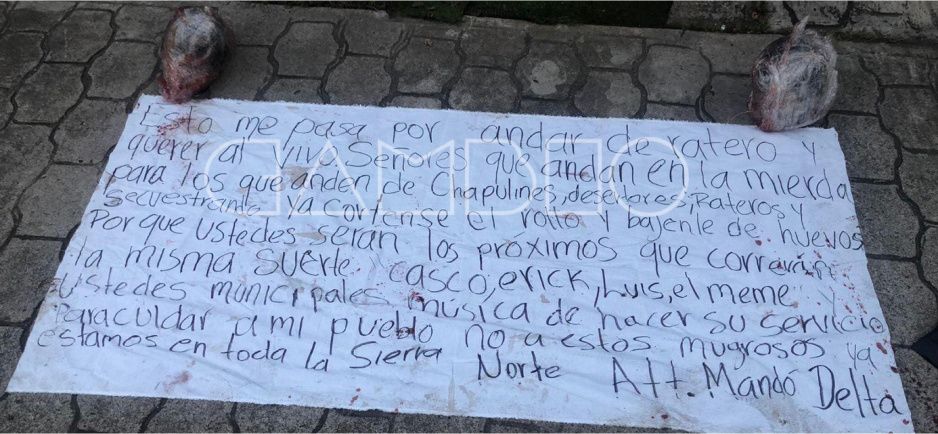 Esto me pasa por andar de ratero y
querer al vivo Señores que andan en la mierda
para los que anden de Chapulines, desertores, Rateros y
secuestrante ya cortense el rollo y bajenle de huevos
Porque ustedes seran los proximos que correran
la misma suerte casco, erick, Luis, el meme y
Ustedes municipales música de hacer su servicio
Para cuidar a mi pueblo no a estos mugrosos ya
estamos en toda la Sierra Norte Att. Mandó Delta